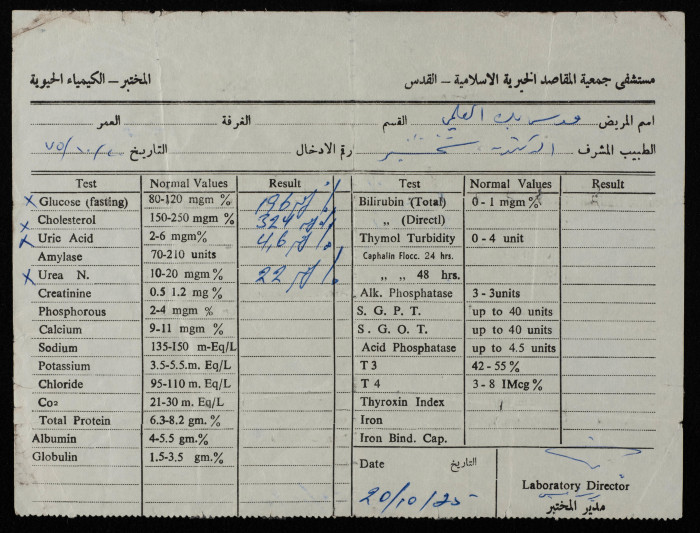 مستشفى جمعية المقاصد الخيرية الاسلامية – القدس المختبر – الكيمياء الحيوية
اسم المريض بك العلمي القسم الغرفة العمر
الطبيب المشرف رقم الادخال التاريخ
Test Normal Values Result Test Normal Values Result
x Glucose (fasting) 80-120 mgm % 196 % Bilirubin (Total) 0-1 mgm%
x Cholesterol 150-250 mgm % 324 % „ (Directl)
x Uric Acid 2-6 mgm% 4,6 % Thymol Turbidity 0-4 unit
Amylase 70-210 units Caphalin Flocc. 24 hrs.
x Urea N. 10-20 mgm % 22 % „ „ 48 hrs.
Creatinine 0.5 1.2 mg % Alk. Phosphatase 3-3units
Phosphorous 2-4 mgm % S. G. P. T. up to 40 units
Calcium 9-11 mgm % S. G. O. T. up to 40 units
Sodium 135-150 m-Eq/L Acid Phosphatase up to 4.5 units
Potassium 3.5-5.5.m. Eq/L T 3 42-55 %
Chloride 95-110 m. Eq/L T 4 3-8 IMcg %
Co2 21-30 m. Eq/L Thyroxin Index
Total Protein 6.3-8.2 gm. % Iron
Albumin 4-5.5 gm.% Iron Bind. Cap.
Globulin 1.5-3.5 gm.%
Date التاريخ
Laboratory Director
20/10/75
مدير المختبر